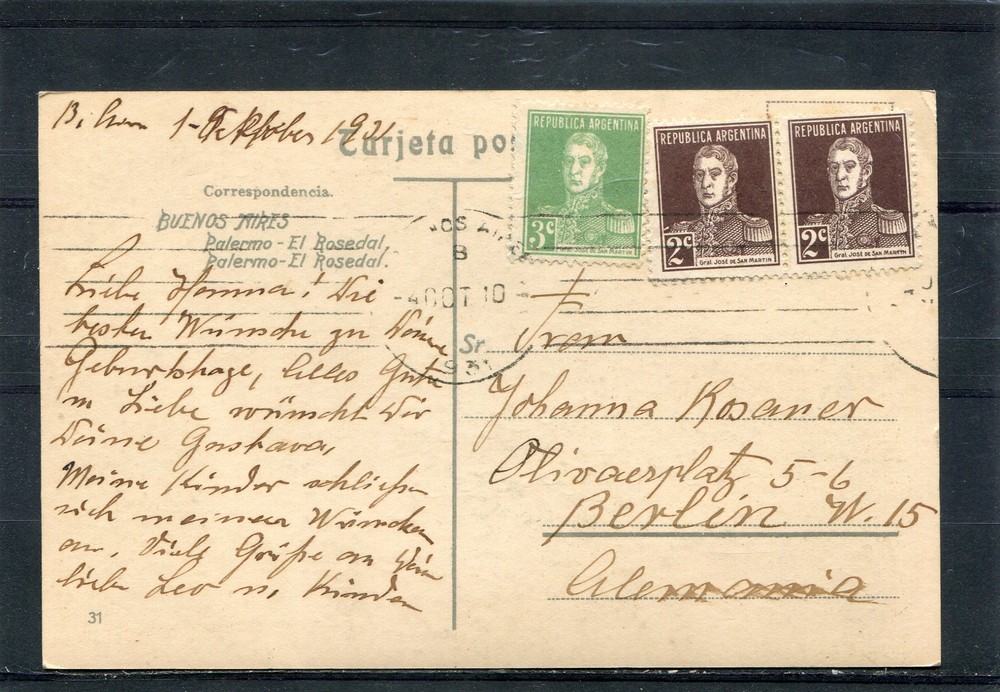 1. Oktober 1931
Tarjeta po
Correspondencia.
BUENOS AIRES
Palermo-El Rosedal,
Palermo-El Rosedal.
Liebe Hanna! Die
besten Wünsche zu Deinem
Geburtstage, alles Gute
u Liebe wünscht Dir
Deine Gustava,
Meine Kinder schließen
sich meinen Wünschen
an. Viele Grüße an Deine
liebe Leo u. Kinder
31
REPUBLICA ARGENTINA
3c
Gral. José de San Martin
REPUBLICA ARGENTINA
2c
Gral. José de San Martin
REPUBLICA ARGENTINA
2c
Gral. José de San Martin
NOS AIRES
8
-4 OCT 10
1931
Sr.
Frau
Johanna Rosauer
Olivaerplatz 5-6
Berlin W. 15
Alemania